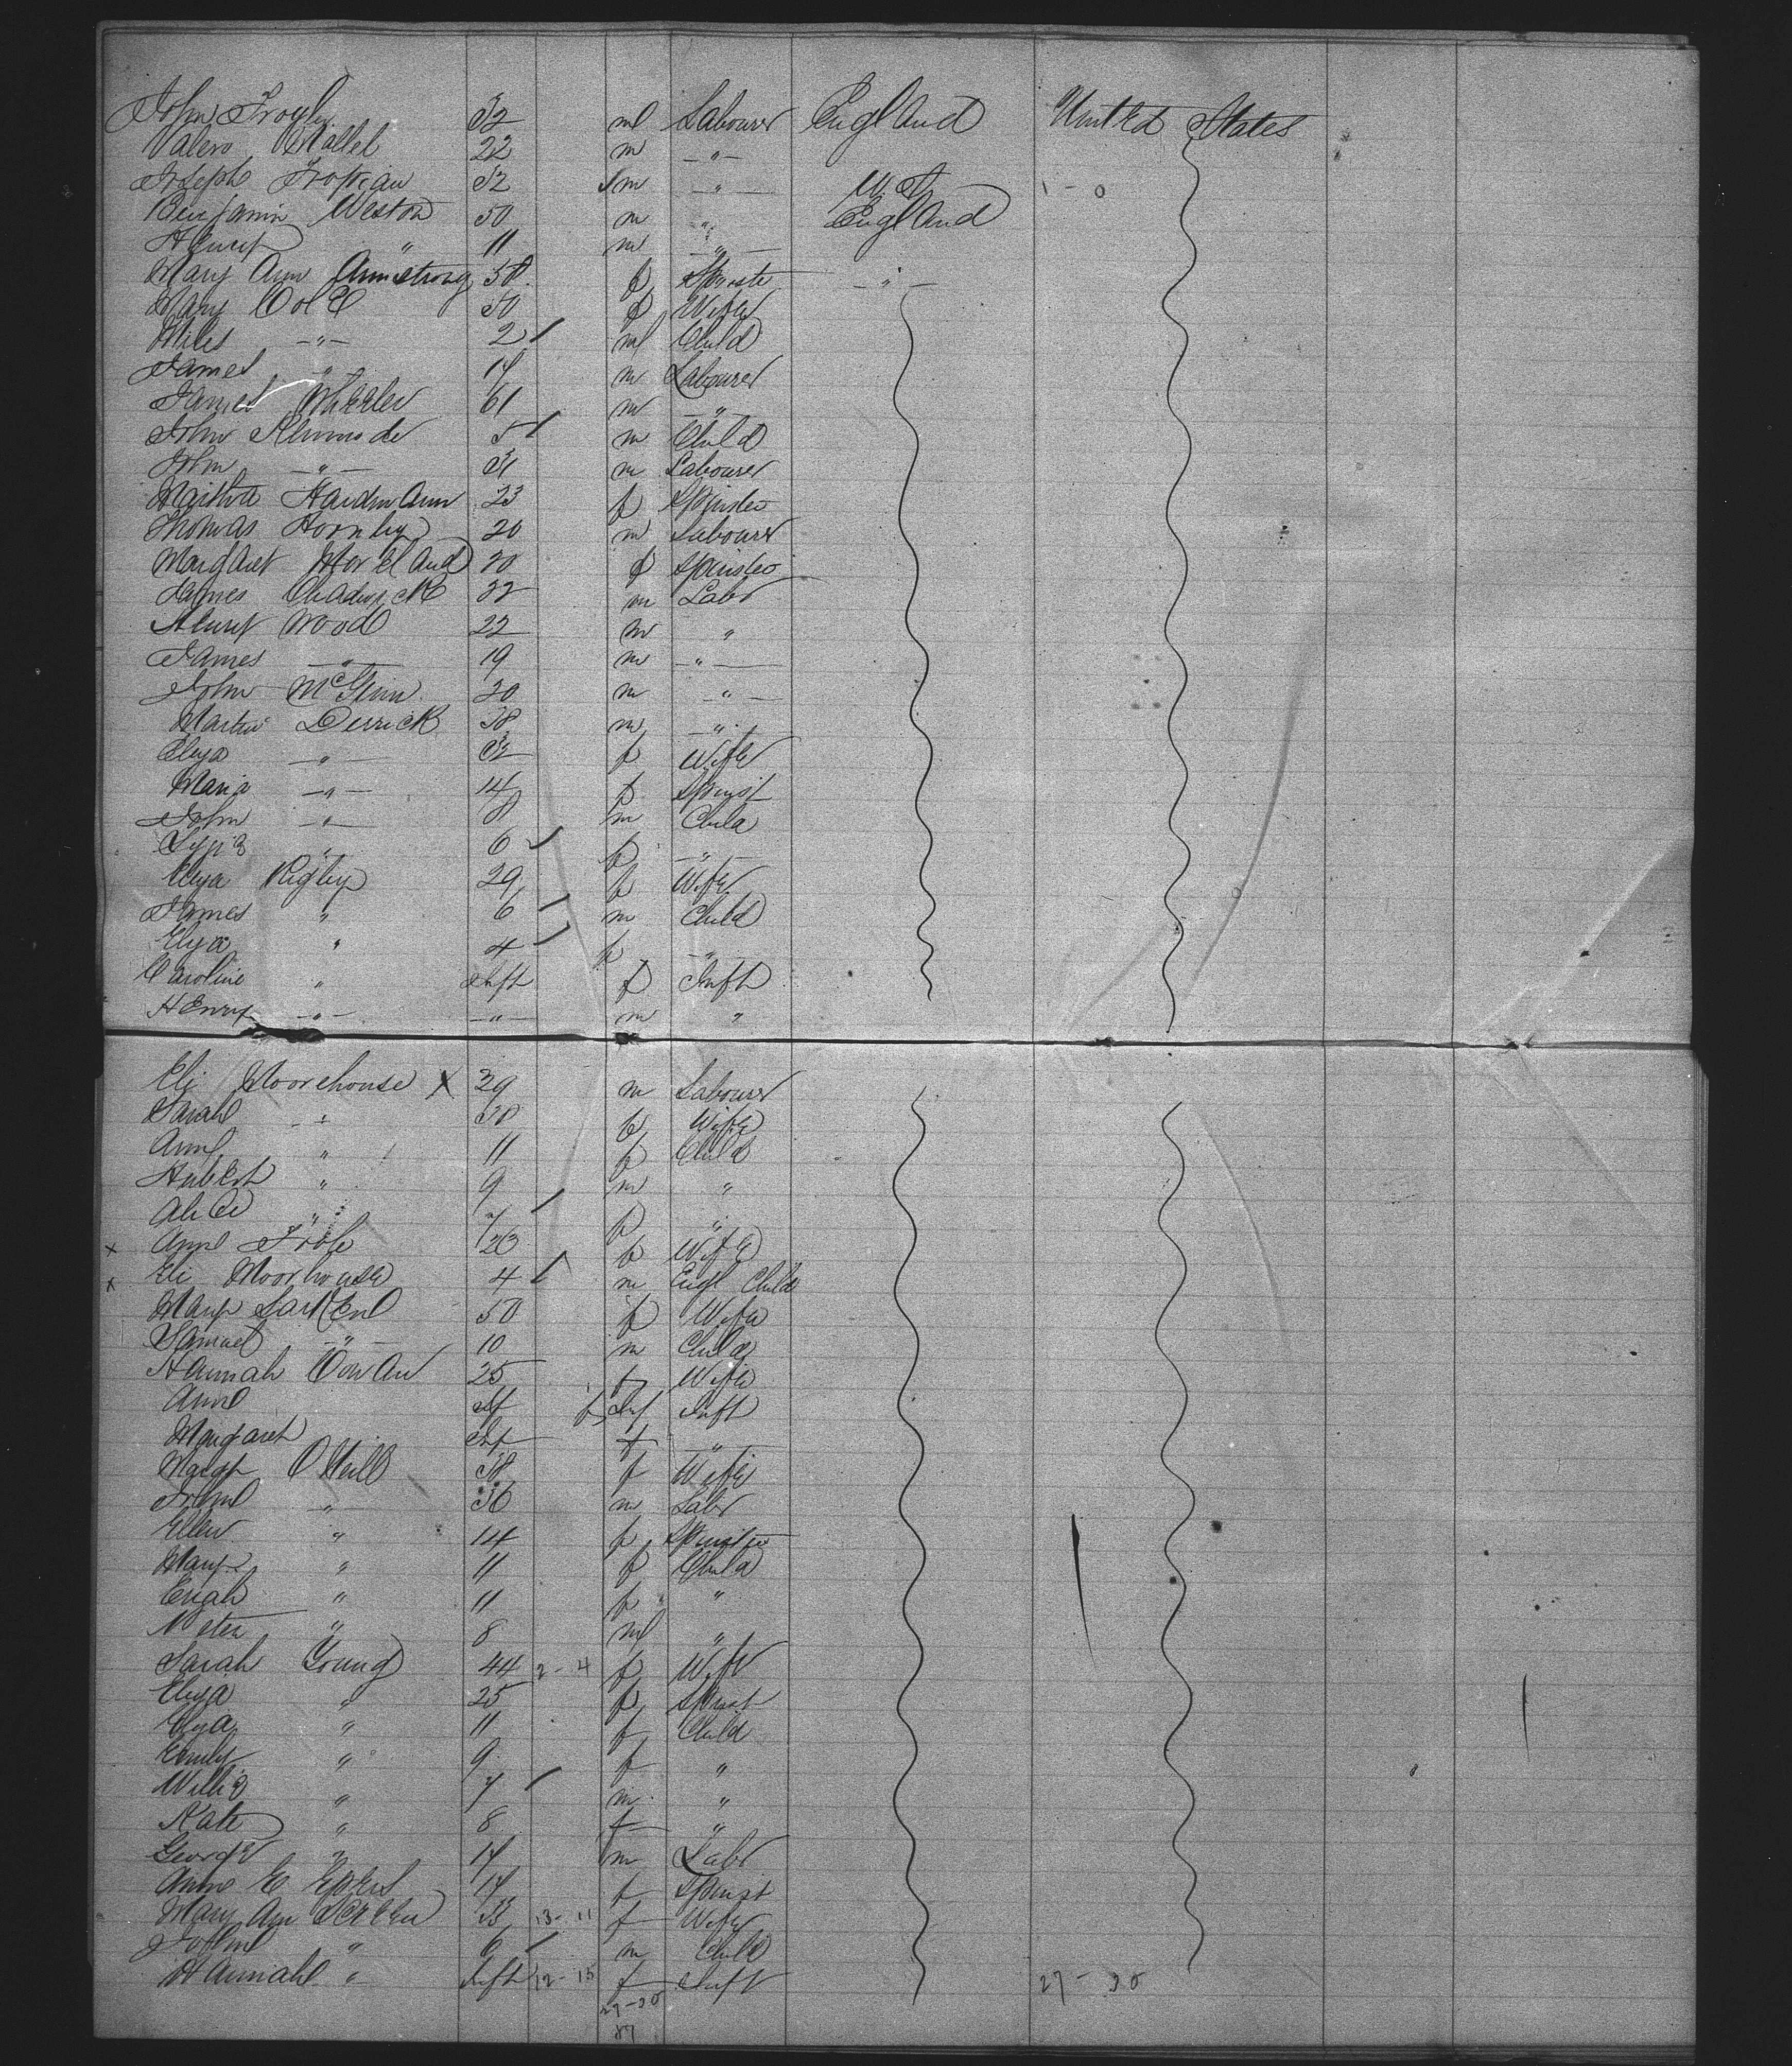 John Frogley 32 m Labourer England United States
Valero Mallel 22 m —"—
Joseph 32 m —"— U. S. 1 - 0
Benjamin Weston 50 m " England
Henry " 11 m —"—
Mary Ann Armstrong 50 f Spinster —"—
Mary Cole 50 f Wife
Miles —"— 2 m Child
James " 17 m Labourer
James Wheeler 61 m —"—
John 5 m Child
John —"— 31 m Labourer
Martha Hardmann 23 f Spinster
Thomas Hornby 20 m Labourer
Margaret Moreland 20 f Spinster
James Chadwick 22 m Labr
Henry Wood 22 m "
James —"— 19 m —"—
John McGlinn 20 m —"—
Martin Derrick 38 m —"—
Eliza —"— 32 f Wife
Maria —"— 14 f Spinst
John —"— 8 m Child
" 6 f —"—
Eliza Rigby 29 f Wife
James " 6 m Child
Eliza " 4 f —"—
Caroline " Inft f Inft
Henry —"— —"— m "
Eli Moorehouse X 39 m Labourer
Sarah " 38 f Wife
Ann " 11 f Child
Hubert " 9 m "
Alice " 7 f "
x Ann 23 f Wife
x Eli Moorhouse 4 m Engl Child
Mary 50 f Wife
Samuel —"— 10 m Child
Hannah Cowan 25 f Wife
Ann Inf f Inf Inft
Margaret Inf f —"—
Margt O'Neill 38 f Wife
John —"— 36 m Labr
Ellen " 14 f Spinster
Mary " 11 f Child
" 11 f "
Peter " 8 m "
Sarah Young 44 2 - 4 f Wife
Eliza " 25 f Spinst
" 11 f Child
Emily " 9 f "
Willie " 7 m "
Kate " 8 f "
George " 17 m Labr
Anne E 17 f Spinst
Mary Ann 33 13 - 11 f Wife
John " 6 m Child
Hannah " Inft 12 - 15 f Inft 27 - 30
27-30
87